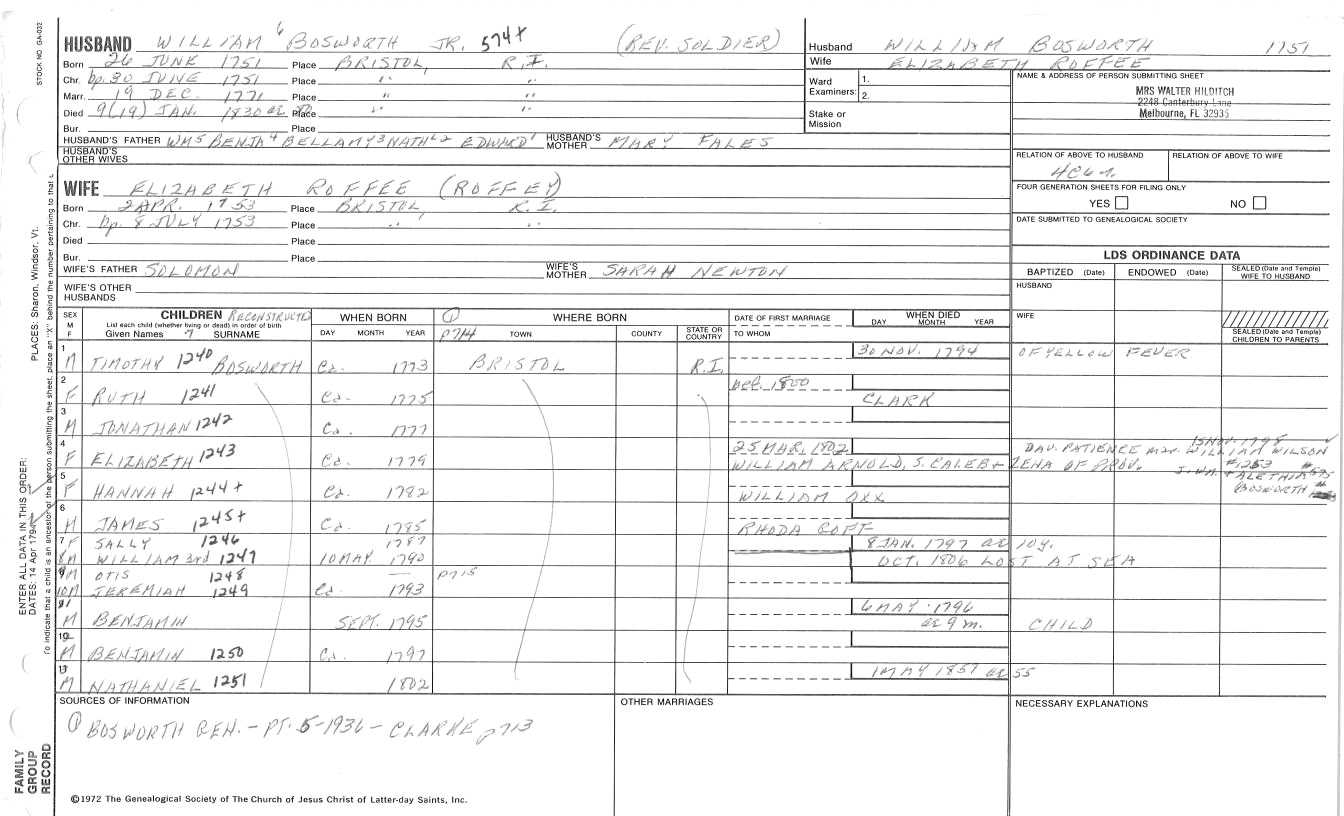 STOCK NO. GA-032
HUSBAND WILLIAM 6 BOSWORTH JR. 574+ (REV. SOLDIER)
Born 26 JUNE 1751 Place BRISTOL, R.I.
Chr. bp. 30 JUNE 1751 Place " "
Marr. 19 DEC. 1771 Place " "
Died 9(19) JAN. 1830 ae 80 Place " "
Bur. Place
HUSBAND'S FATHER WM5 BENJA4 BELLAMY3 NATHL2 EDWARD1 HUSBAND'S MOTHER MARY FALES
HUSBAND'S OTHER WIVES
Husband WILLIAM BOSWORTH 1751
Wife ELIZABETH ROFFEE
Ward Examiners: 1. 2.
Stake or Mission
NAME & ADDRESS OF PERSON SUBMITTING SHEET
MRS WALTER HILDITCH
2248 Canterbury Lane
Melbourne, FL 32935
RELATION OF ABOVE TO HUSBAND RELATION OF ABOVE TO WIFE
FOUR GENERATION SHEETS FOR FILING ONLY
YES NO
DATE SUBMITTED TO GENEALOGICAL SOCIETY
WIFE ELIZABETH ROFFEE (ROFFEY)
Born 2 APR. 1753 Place BRISTOL, R.I.
Chr. bp. 8 JULY 1753 Place " "
Died Place
Bur. Place
WIFE'S FATHER SOLOMON WIFE'S MOTHER SARAH NEWTON
WIFE'S OTHER HUSBANDS
LDS ORDINANCE DATA
BAPTIZED (Date) ENDOWED (Date) SEALED (Date and Temple) WIFE TO HUSBAND
HUSBAND
WIFE
SEALED (Date and Temple) CHILDREN TO PARENTS
SEX M F CHILDREN RECONSTRUCTED
List each child (whether living or dead) in order of birth
Given Names 7 SURNAME
WHEN BORN DAY MONTH YEAR
① P714 WHERE BORN TOWN COUNTY STATE OR COUNTRY
DATE OF FIRST MARRIAGE TO WHOM
WHEN DIED DAY MONTH YEAR
1 M TIMOTHY 1240 BOSWORTH Ca. 1773 BRISTOL R.I. 30 NOV. 1794 OF YELLOW FEVER
2 F RUTH 1241 Ca. 1775 1800 CLARK
3 M JONATHAN 1242 Ca. 1777
4 F ELIZABETH 1243 Ca. 1779 25 MAR. 1802 WILLIAM ARNOLD, S. CALEB + ZENA OF PROV.
15 NOV. 1798
DAU. PATIENCE mar. WILLIAM WILSON
#1253
+ ALETHIA 575
BOSWORTH
5 F HANNAH 1244+ Ca. 1782 WILLIAM OXX
6 M JAMES 1245+ Ca. 1785 RHODA GOFF
7 F SALLY 1246 1787 8 JAN. 1797 ae 10y.
8 M WILLIAM 3rd 1247 10 MAY 1790 OCT. 1806 LOST AT SEA
9 M OTIS 1248 — P715
10 M JEREMIAH 1249 Ca. 1793
11 M BENJAMIN SEPT. 1795 6 MAY 1796 ae 9 m. CHILD
12 M BENJAMIN 1250 Ca. 1797
13 M NATHANIEL 1251 1802 1 MAY 1857 ae 55
SOURCES OF INFORMATION
① BOSWORTH GEN. - PT. 5 - 1936 - CLARKE p713
OTHER MARRIAGES
NECESSARY EXPLANATIONS
©1972 The Genealogical Society of The Church of Jesus Christ of Latter-day Saints, Inc.
PLACES: Sharon, Windsor, Vt.
ENTER ALL DATA IN THIS ORDER:
DATES: 14 Apr 1794
To indicate that a child is an ancestor of the person submitting the sheet, place an "X" behind the number pertaining to that
FAMILY GROUP RECORD